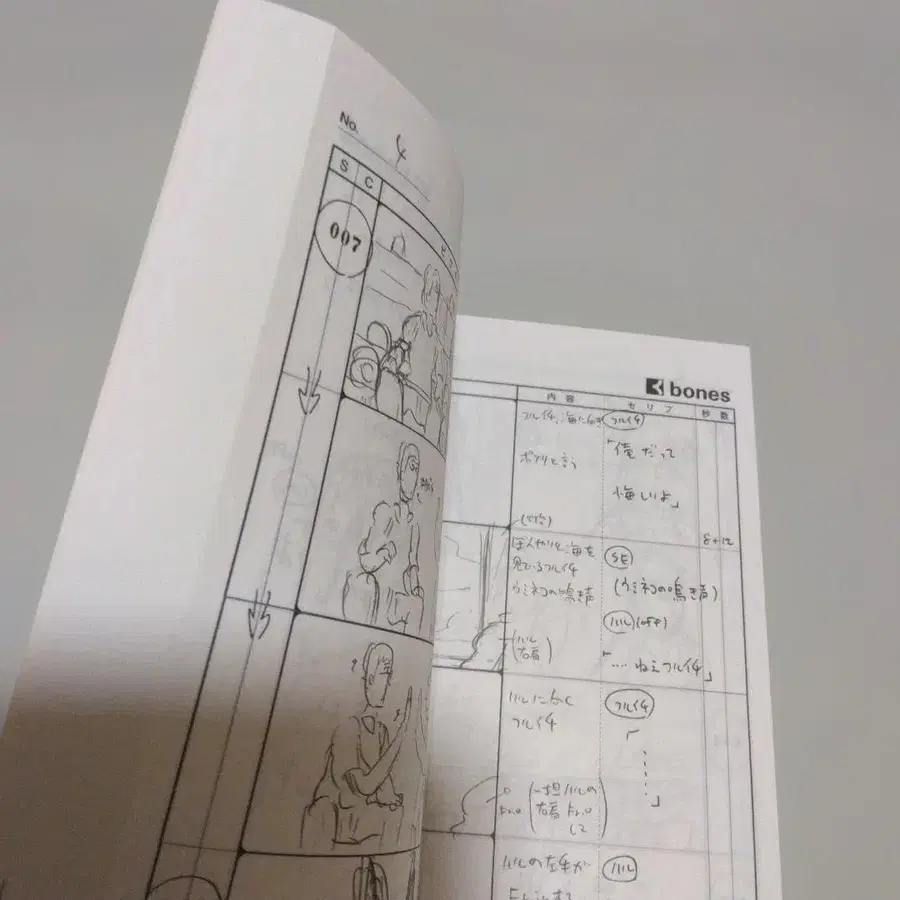 No. 4
S C
007
bones
内容 セリフ 秒数
フルイチ
「俺だって
悔しいよ」
ポツリと言う
8+12
ぼんやりと海を
見ているフルイチ
ウミネコの鳴き声
SE
(ウミネコの鳴き声)
ハル (off)
「…ねえフルイチ」
(ハル
右肩)
ハルに向く
フルイチ
フルイチ
「……」
(一担ハルの
右肩 Fr.o
して)
ハルの左手が
ハル